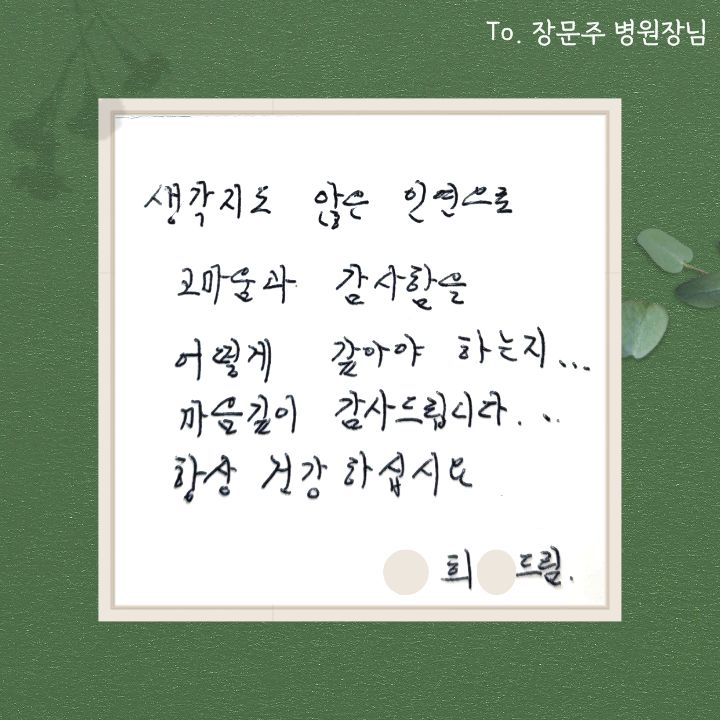 To. 장문주 병원장님
생각지도 않은 인연으로
고마움과 감사함을
어떻게 갚아야 하는지...
마음깊이 감사드립니다...
항상 건강하십시요
희 드림.